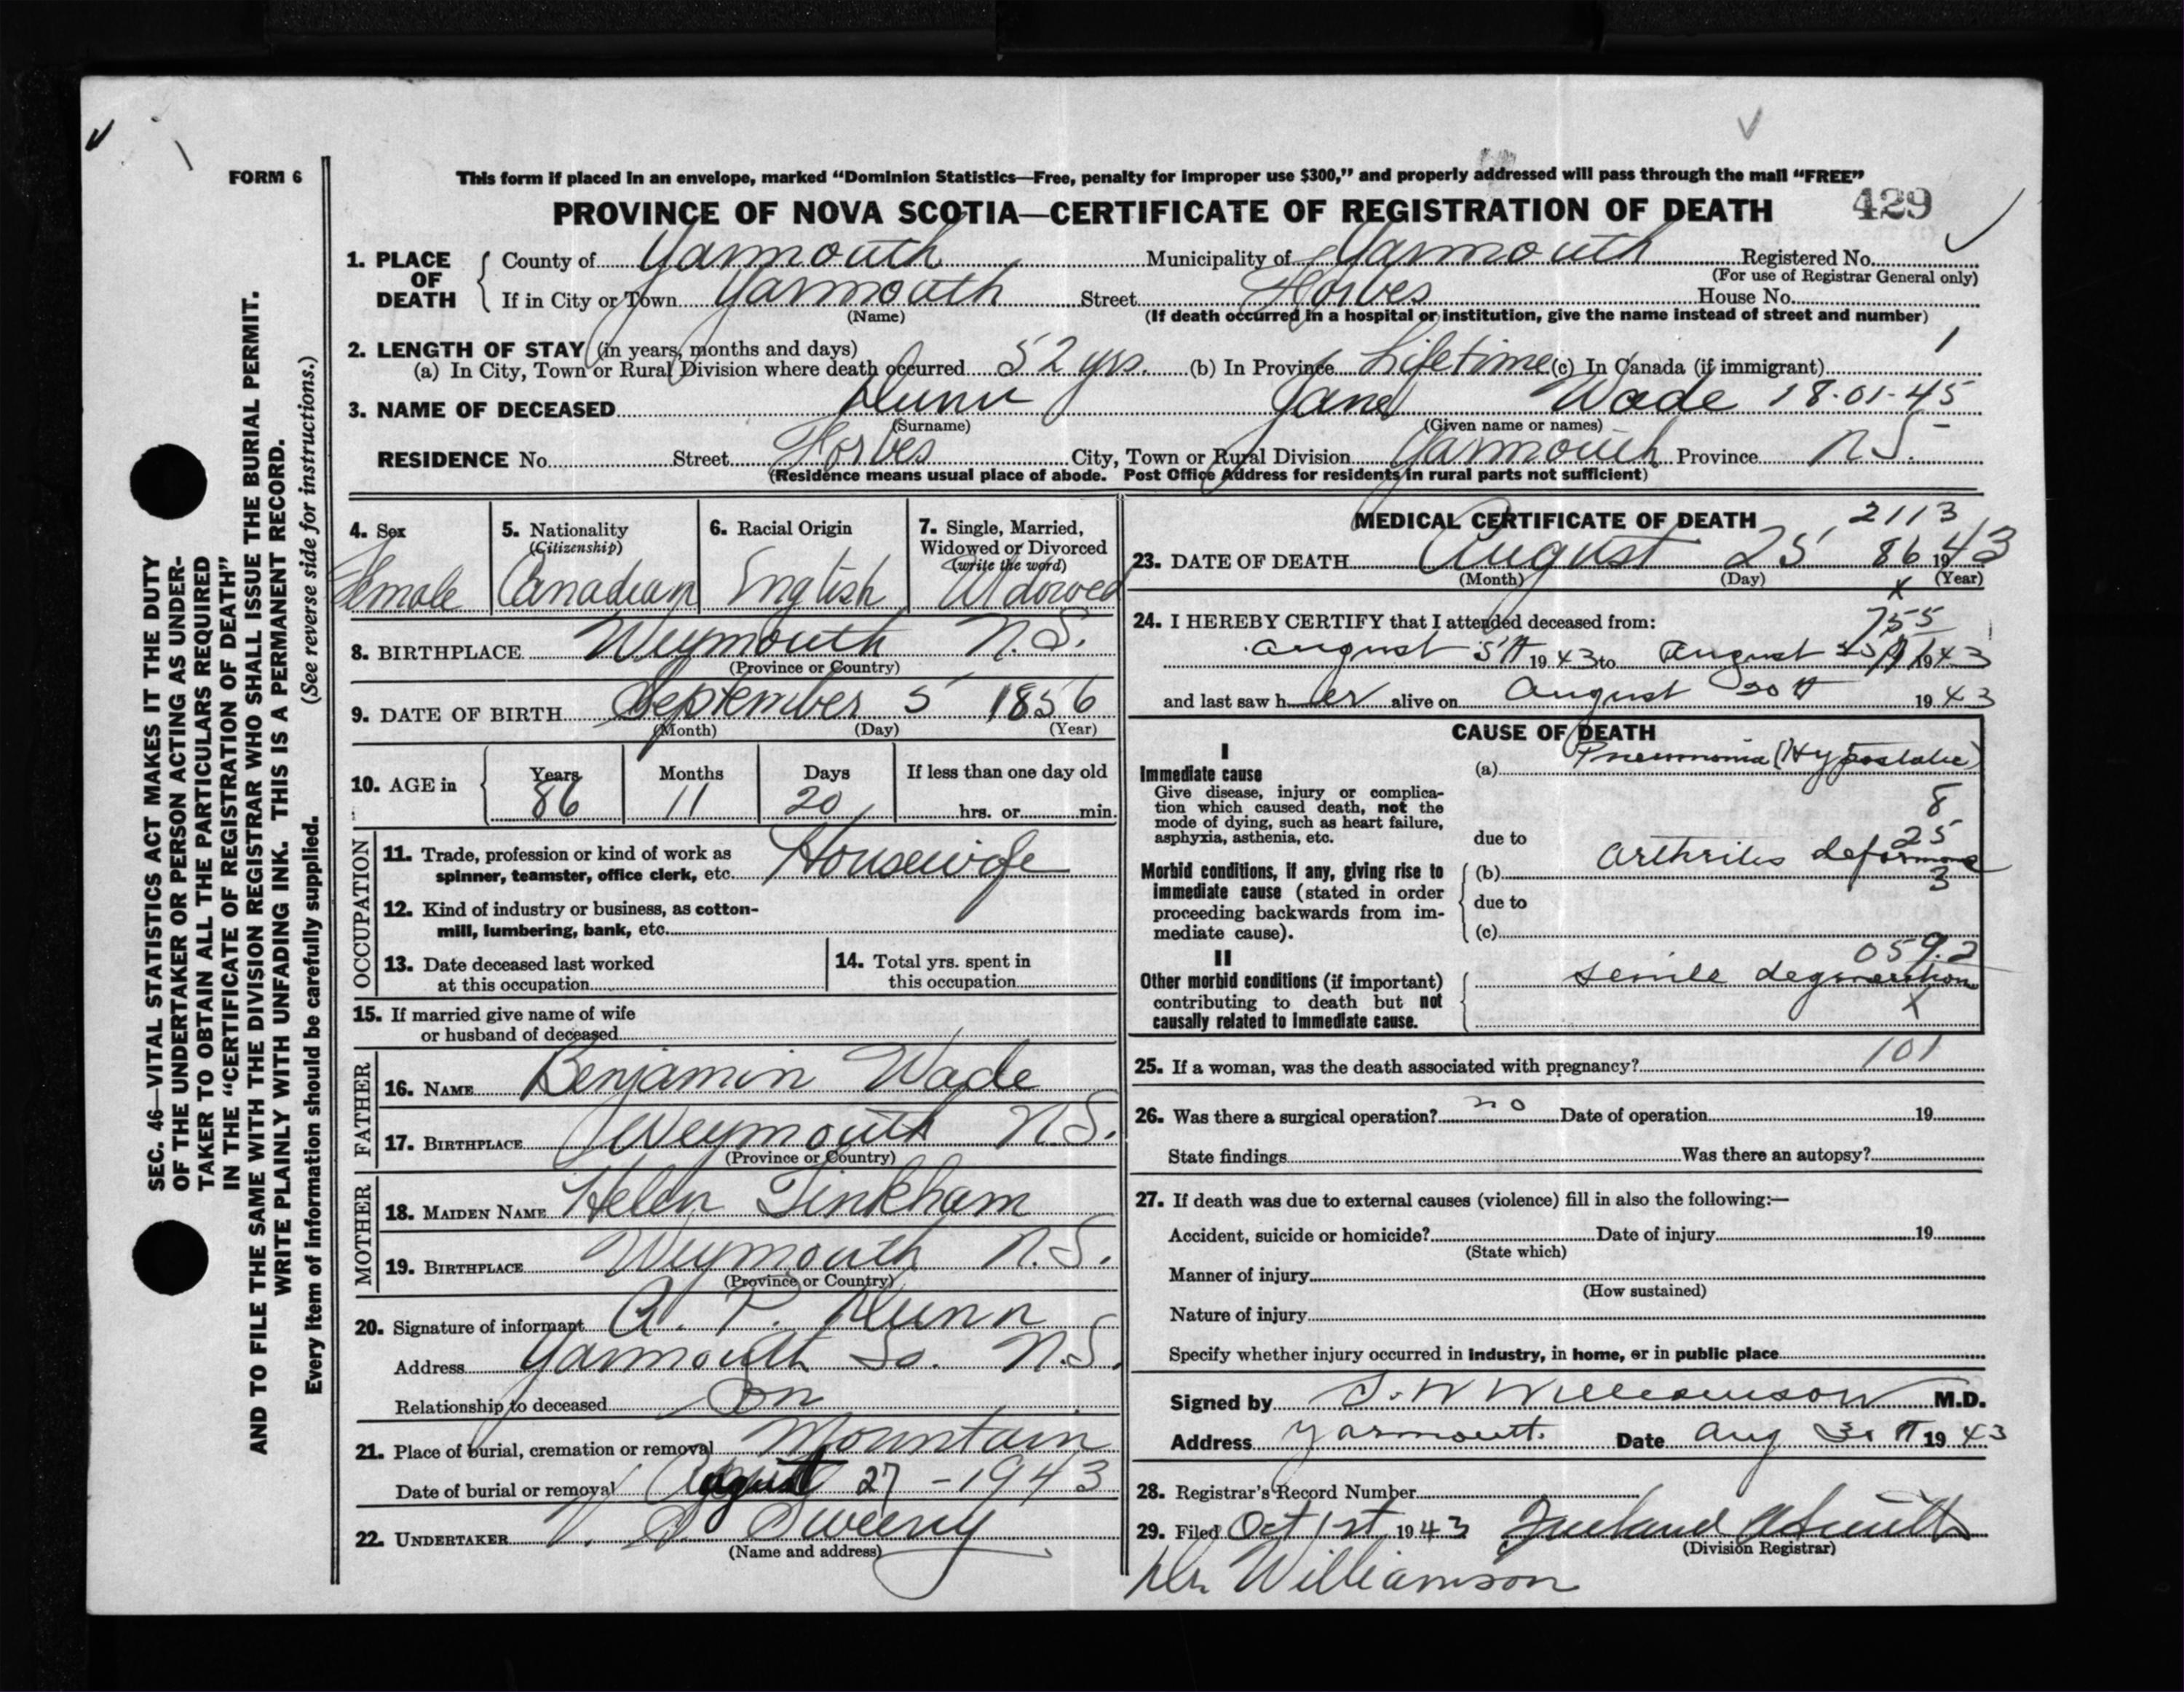 FORM 6
This form if placed in an envelope, marked “Dominion Statistics—Free, penalty for improper use $300,” and properly addressed will pass through the mail “FREE”
PROVINCE OF NOVA SCOTIA—CERTIFICATE OF REGISTRATION OF DEATH 429
1. PLACE OF DEATH
County of Yarmouth Municipality of Yarmouth Registered No.
(For use of Registrar General only)
If in City or Town Yarmouth Street Forbes House No.
(Name) (If death occurred in a hospital or institution, give the name instead of street and number)
2. LENGTH OF STAY (in years, months and days)
(a) In City, Town or Rural Division where death occurred 52 yrs. (b) In Province Lifetime (c) In Canada (if immigrant) 1
3. NAME OF DECEASED Dunn Jane Wade 18-01-45
(Surname) (Given name or names)
RESIDENCE No. Street Forbes City, Town or Rural Division Yarmouth Province N.S.
(Residence means usual place of abode. Post Office Address for residents in rural parts not sufficient)
4. Sex
Female
5. Nationality
(Citizenship)
Canadian
6. Racial Origin
English
7. Single, Married,
Widowed or Divorced
(write the word)
Widowed
8. BIRTHPLACE Weymouth N.S.
(Province or Country)
9. DATE OF BIRTH September 5 1856
(Month) (Day) (Year)
10. AGE in
Years Months Days If less than one day old
86 11 20 hrs. or min.
OCCUPATION
11. Trade, profession or kind of work as
spinner, teamster, office clerk, etc. Housewife
12. Kind of industry or business, as cotton-
mill, lumbering, bank, etc.
13. Date deceased last worked
at this occupation
14. Total yrs. spent in
this occupation
15. If married give name of wife
or husband of deceased
FATHER
16. NAME Benjamin Wade
17. BIRTHPLACE Weymouth N.S.
(Province or Country)
MOTHER
18. MAIDEN NAME Helen Tinkham
19. BIRTHPLACE Weymouth N.S.
(Province or Country)
20. Signature of informant A. P. Dunn
Address Yarmouth So. N.S.
Relationship to deceased Son
21. Place of burial, cremation or removal Mountain
Date of burial or removal August 27 - 1943
22. UNDERTAKER V. S. Sweeny
(Name and address)
MEDICAL CERTIFICATE OF DEATH 2113
23. DATE OF DEATH August 25 86 1943
(Month) (Day) (Year)
x
24. I HEREBY CERTIFY that I attended deceased from:
755
August 5th 1943 to August 1943
and last saw her alive on August 20th 1943
CAUSE OF DEATH
I
Immediate cause
Give disease, injury or complica-
tion which caused death, not the
mode of dying, such as heart failure,
asphyxia, asthenia, etc.
(a) Pneumonia (Hypostatic)
8
due to 25
Morbid conditions, if any, giving rise to
immediate cause (stated in order
proceeding backwards from im-
mediate cause).
(b) Arthritis deformans
3
due to
(c)
059.2
II
Other morbid conditions (if important)
contributing to death but not
causally related to immediate cause.
senile degeneration
X
25. If a woman, was the death associated with pregnancy? 101
26. Was there a surgical operation? no Date of operation 19
State findings Was there an autopsy?
27. If death was due to external causes (violence) fill in also the following:—
Accident, suicide or homicide? Date of injury 19
(State which)
Manner of injury
(How sustained)
Nature of injury
Specify whether injury occurred in industry, in home, or in public place
Signed by S. W Williamson M.D.
Address Yarmouth Date Aug 1943
28. Registrar's Record Number
29. Filed Oct 1st 1943 Smith
(Division Registrar)
Dr. Williamson
SEC. 46—VITAL STATISTICS ACT MAKES IT THE DUTY
OF THE UNDERTAKER OR PERSON ACTING AS UNDER-
TAKER TO OBTAIN ALL THE PARTICULARS REQUIRED
IN THE “CERTIFICATE OF REGISTRATION OF DEATH”
AND TO FILE THE SAME WITH THE DIVISION REGISTRAR WHO SHALL ISSUE THE BURIAL PERMIT.
WRITE PLAINLY WITH UNFADING INK. THIS IS A PERMANENT RECORD.
Every item of information should be carefully supplied. (See reverse side for instructions.)